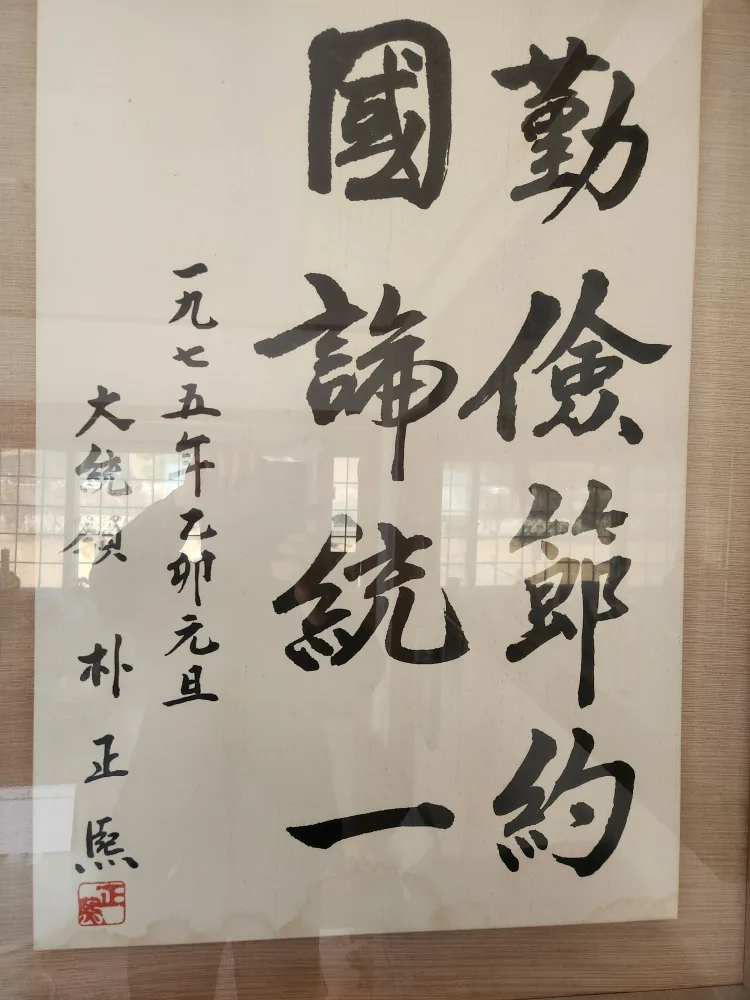 勤儉節約
國論統一
一九七五年乙卯元旦
大統領 朴正熙
正熙